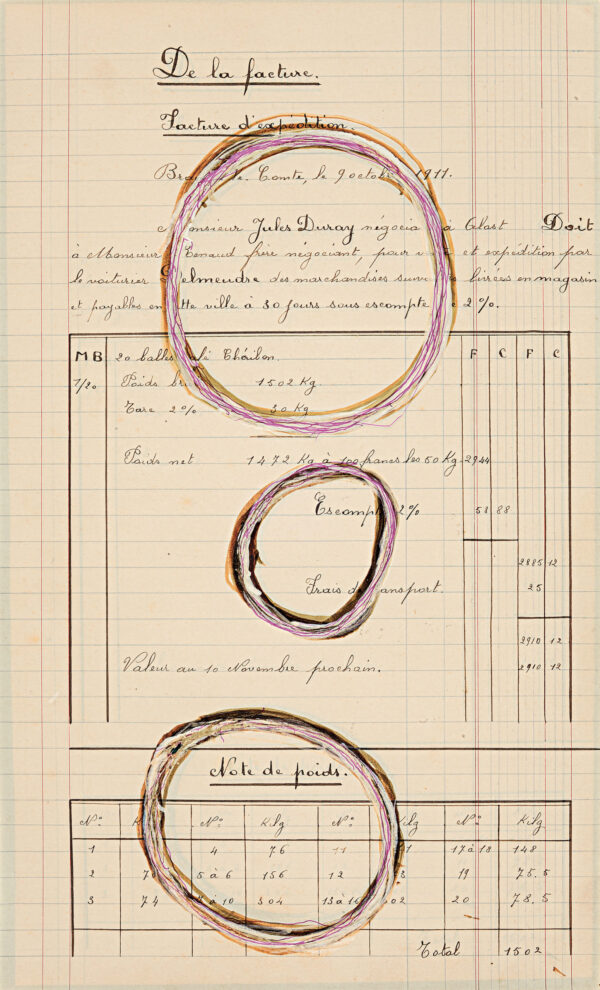 De la facture.
Facture d'expédition.
Comte, le 9 1911.
Monsieur Jules Duray à Alost Doit
à Monsieur Renaud frère négociant, pour et expédition par
le voiturier des marchandises livrées en magasin
et payables en cette ville à 30 jours sous escompte 2%.
MB 20 balles F C F C
1/20 Poids 1502 Kg.
Tare 2% 30 Kg
Poids net 1472 Kg à 100 francs les 50 Kg. 2944
Escompte 2% 58 88
2885 12
Frais de transport. 25
2910 12
Valeur au 10 Novembre prochain. 2910 12
Note de poids.
N° N° Kilg N° N° Kilg
1 4 76 11 17 à 18 148
2 5 à 6 156 12 19 75.5
3 74 à 10 304 13 à 16 20 78.5
Total 1502